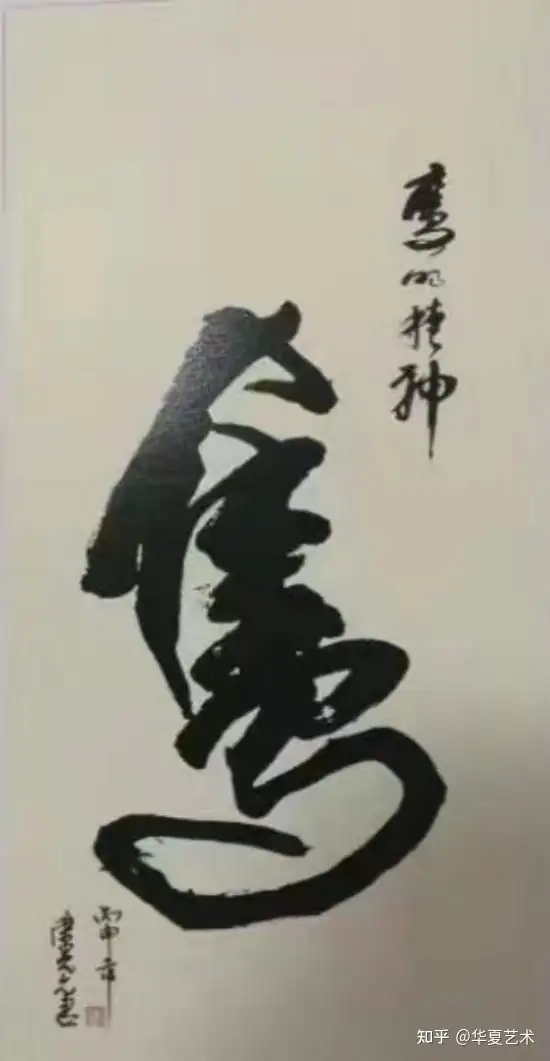 鹰的精神
鹰
丙申年
知乎 @华夏艺术